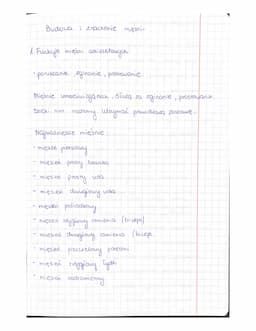 Budowa i znaczenie mięśni
1. Funkcje mięśni szkieletowych
- poruszanie, zginanie, prostowanie
Mięśnie umożliwiają nam zginanie, prostowanie.
Dzięki nim możemy utrzymać prawidłową postawę.
Najważniejsze mięśnie:
- mięsień piersiowy
- mięsień prosty brzucha
- mięsień prosty uda
- mięsień dwugłowy uda
- mięsień pośladkowy
- mięsień trójgłowy ramienia (triceps)
- mięsień dwugłowy ramienia (biceps
- mięsień
- mięsień trójgłowy łydki
- mięsień naramienny